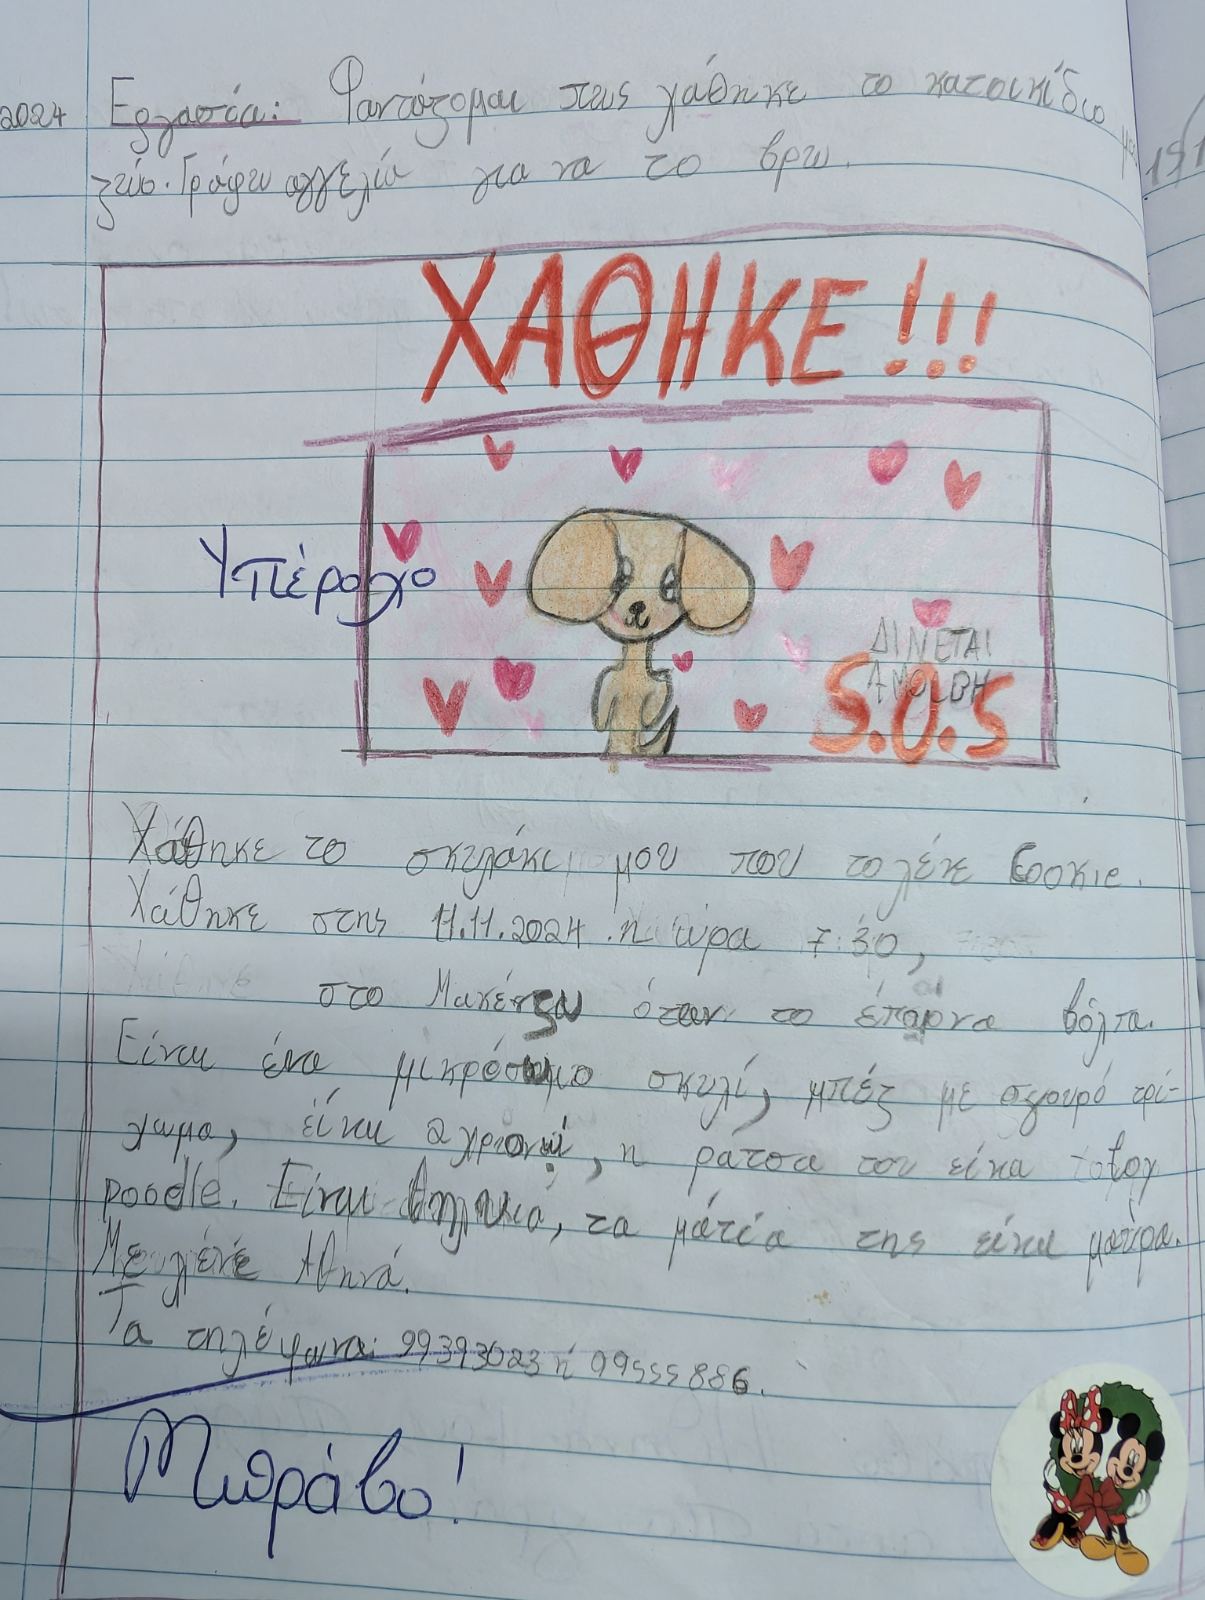 2024 Εργασία: Φαντάζομαι πως χάθηκε το κατοικίδιο μου
ζώο. Γράφω αγγελία για να το βρω.
ΧΑΘΗΚΕ!!!
Υπέροχο
ΔΙΝΕΤΑΙ
ΑΜΟΙΒΗ
S.O.S
Χάθηκε το σκυλάκι μου που το λένε Cookie.
Χάθηκε στης 11.11.2024 η ώρα 7:30,
στο Μακένζυ όταν το έπαιρνα βόλτα.
Είναι ένα μικρόσωμο σκυλί, μπέζ με σγουρό τρί-
χωμα, είναι 2 χρονών, η ράτσα του είναι toy
poodle. Είναι θηλυκιά, τα μάτια της είναι μαύρα.
Με λένε Αθηνά.
Τα τηλέφωνα: 99393023 ή 99555886.
Μπράβο!